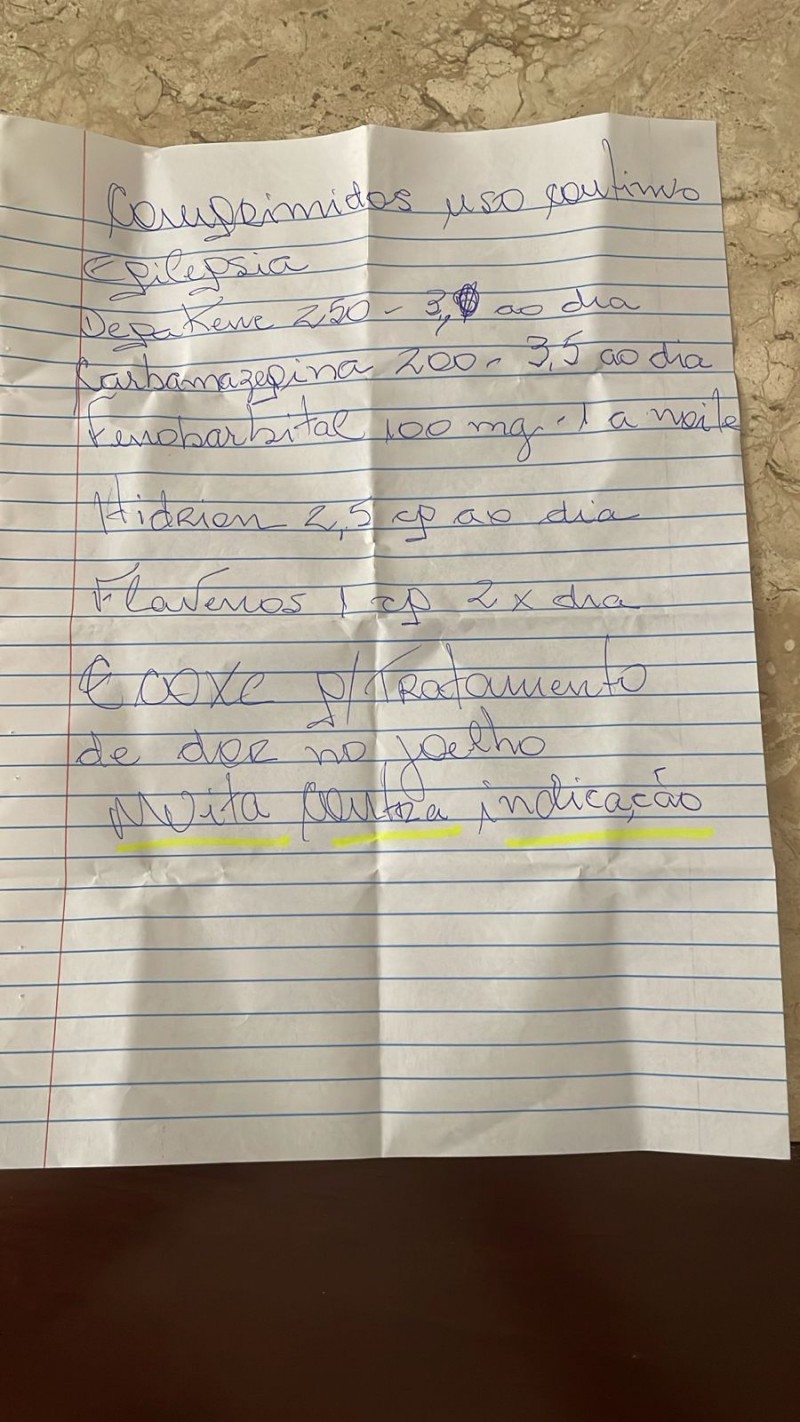 Comprimidos uso contínuo
Epilepsia
Depakene 250 - 3, ao dia
Carbamazepina 200 - 3,5 ao dia
Fenobarbital 100 mg - 1 a noite
Hidrion 2,5 cp ao dia
Flavenos 1 cp 2 x dia
ECOXE p/ Tratamento
de dor no joelho
Muita contra indicação